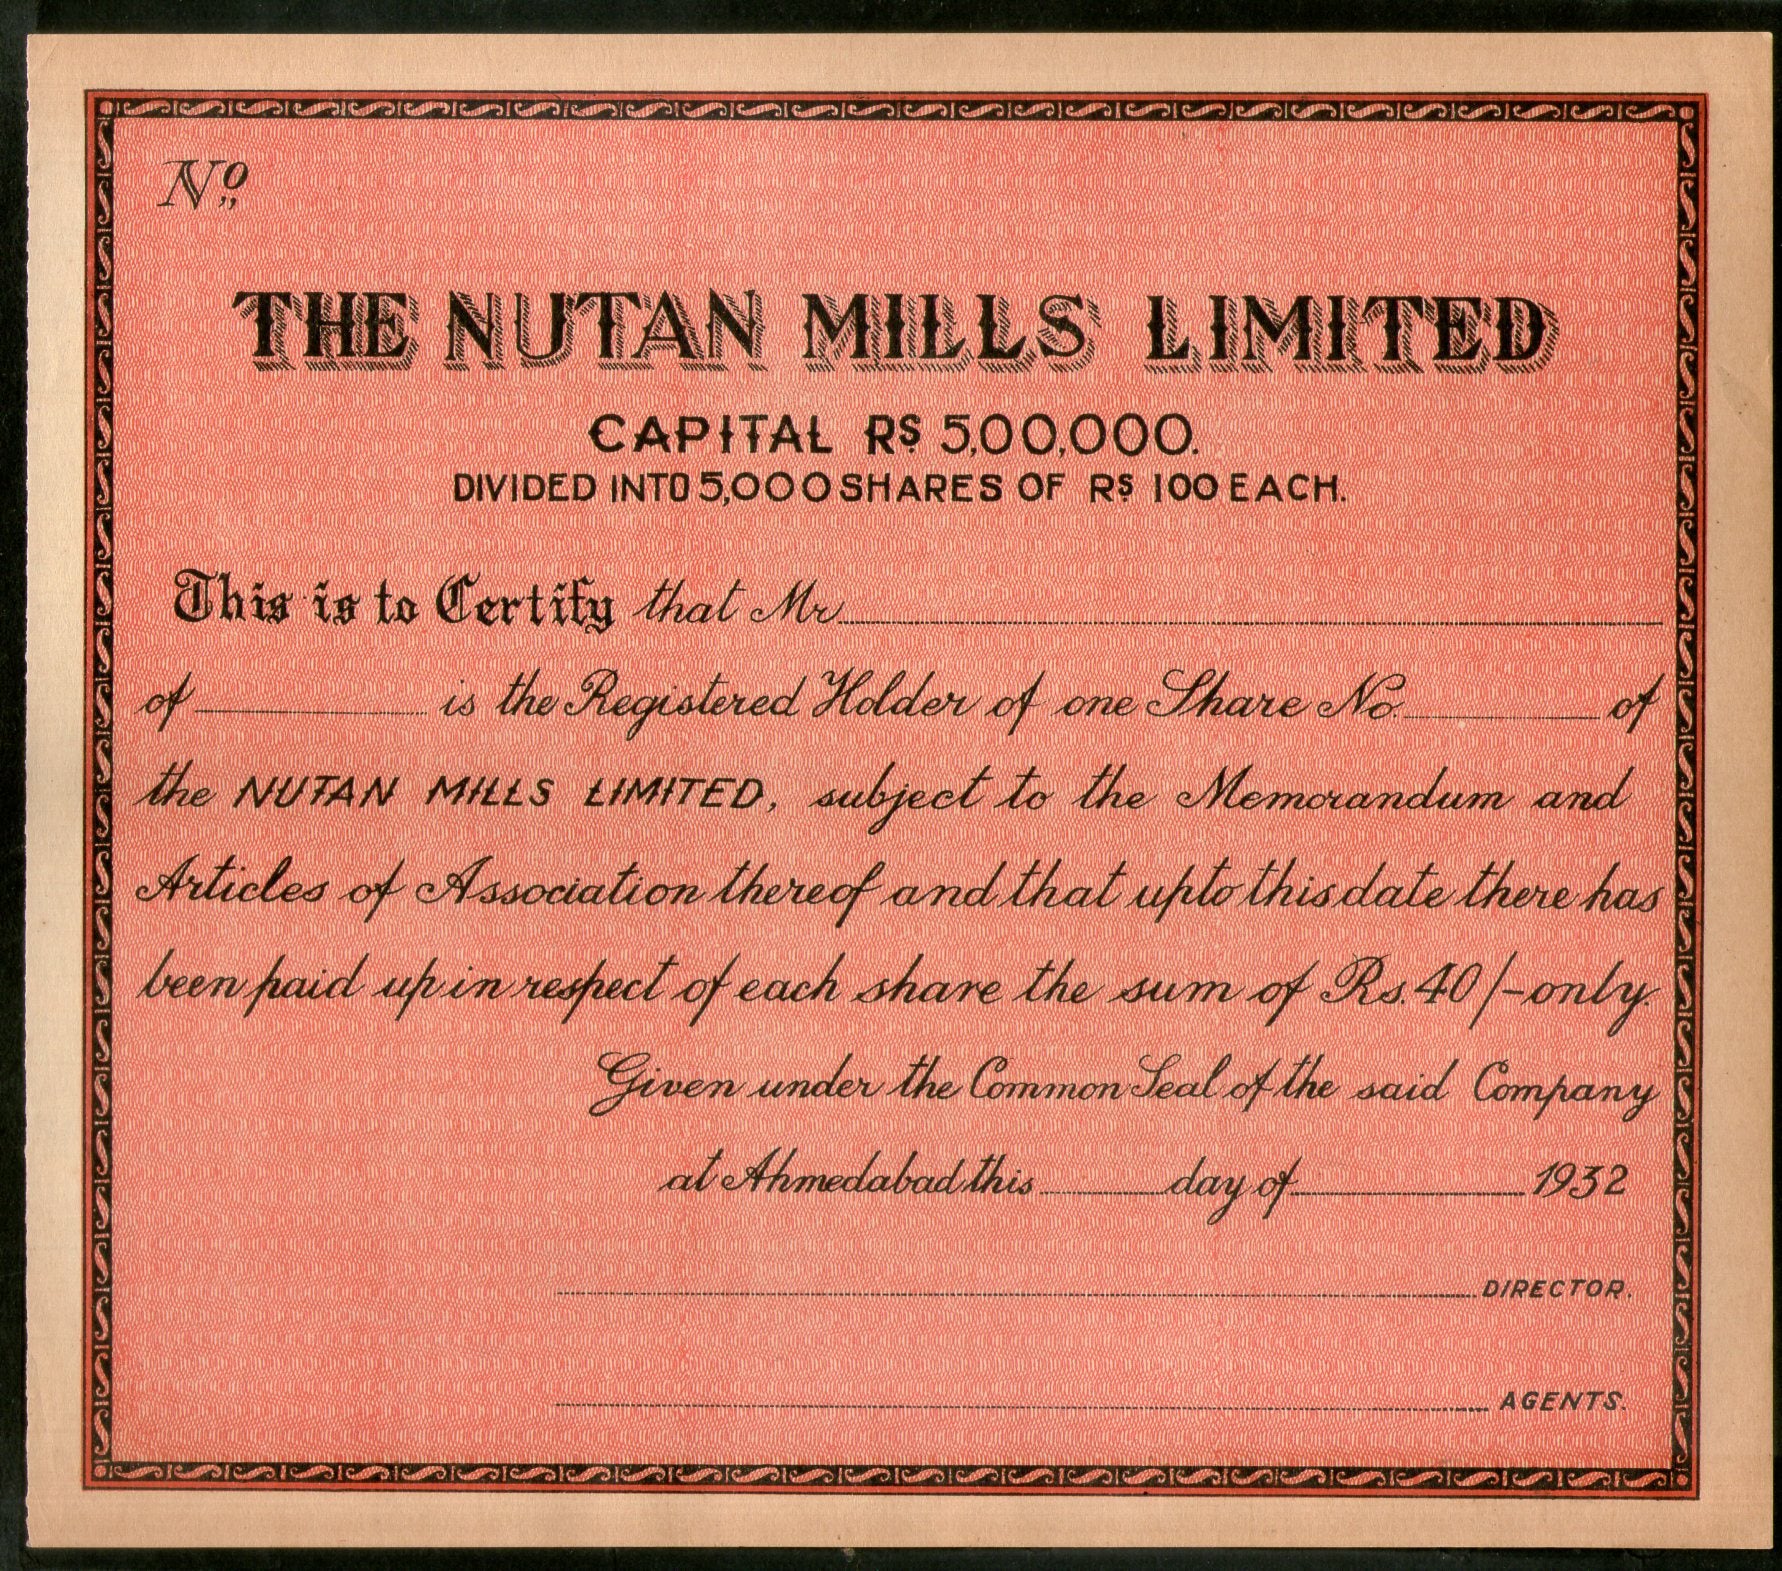 No
THE NUTAN MILLS LIMITED
CAPITAL Rs 5,00,000.
DIVIDED INTO 5,000 SHARES OF Rs 100 EACH.
This is to Certify that Mr
of is the Registered Holder of one Share No. of
the NUTAN MILLS LIMITED, subject to the Memorandum and
Articles of Association thereof and that upto this date there has
been paid up in respect of each share the sum of Rs. 40/- only.
Given under the Common Seal of the said Company
at Ahmedabad this day of 1932
DIRECTOR.
AGENTS.